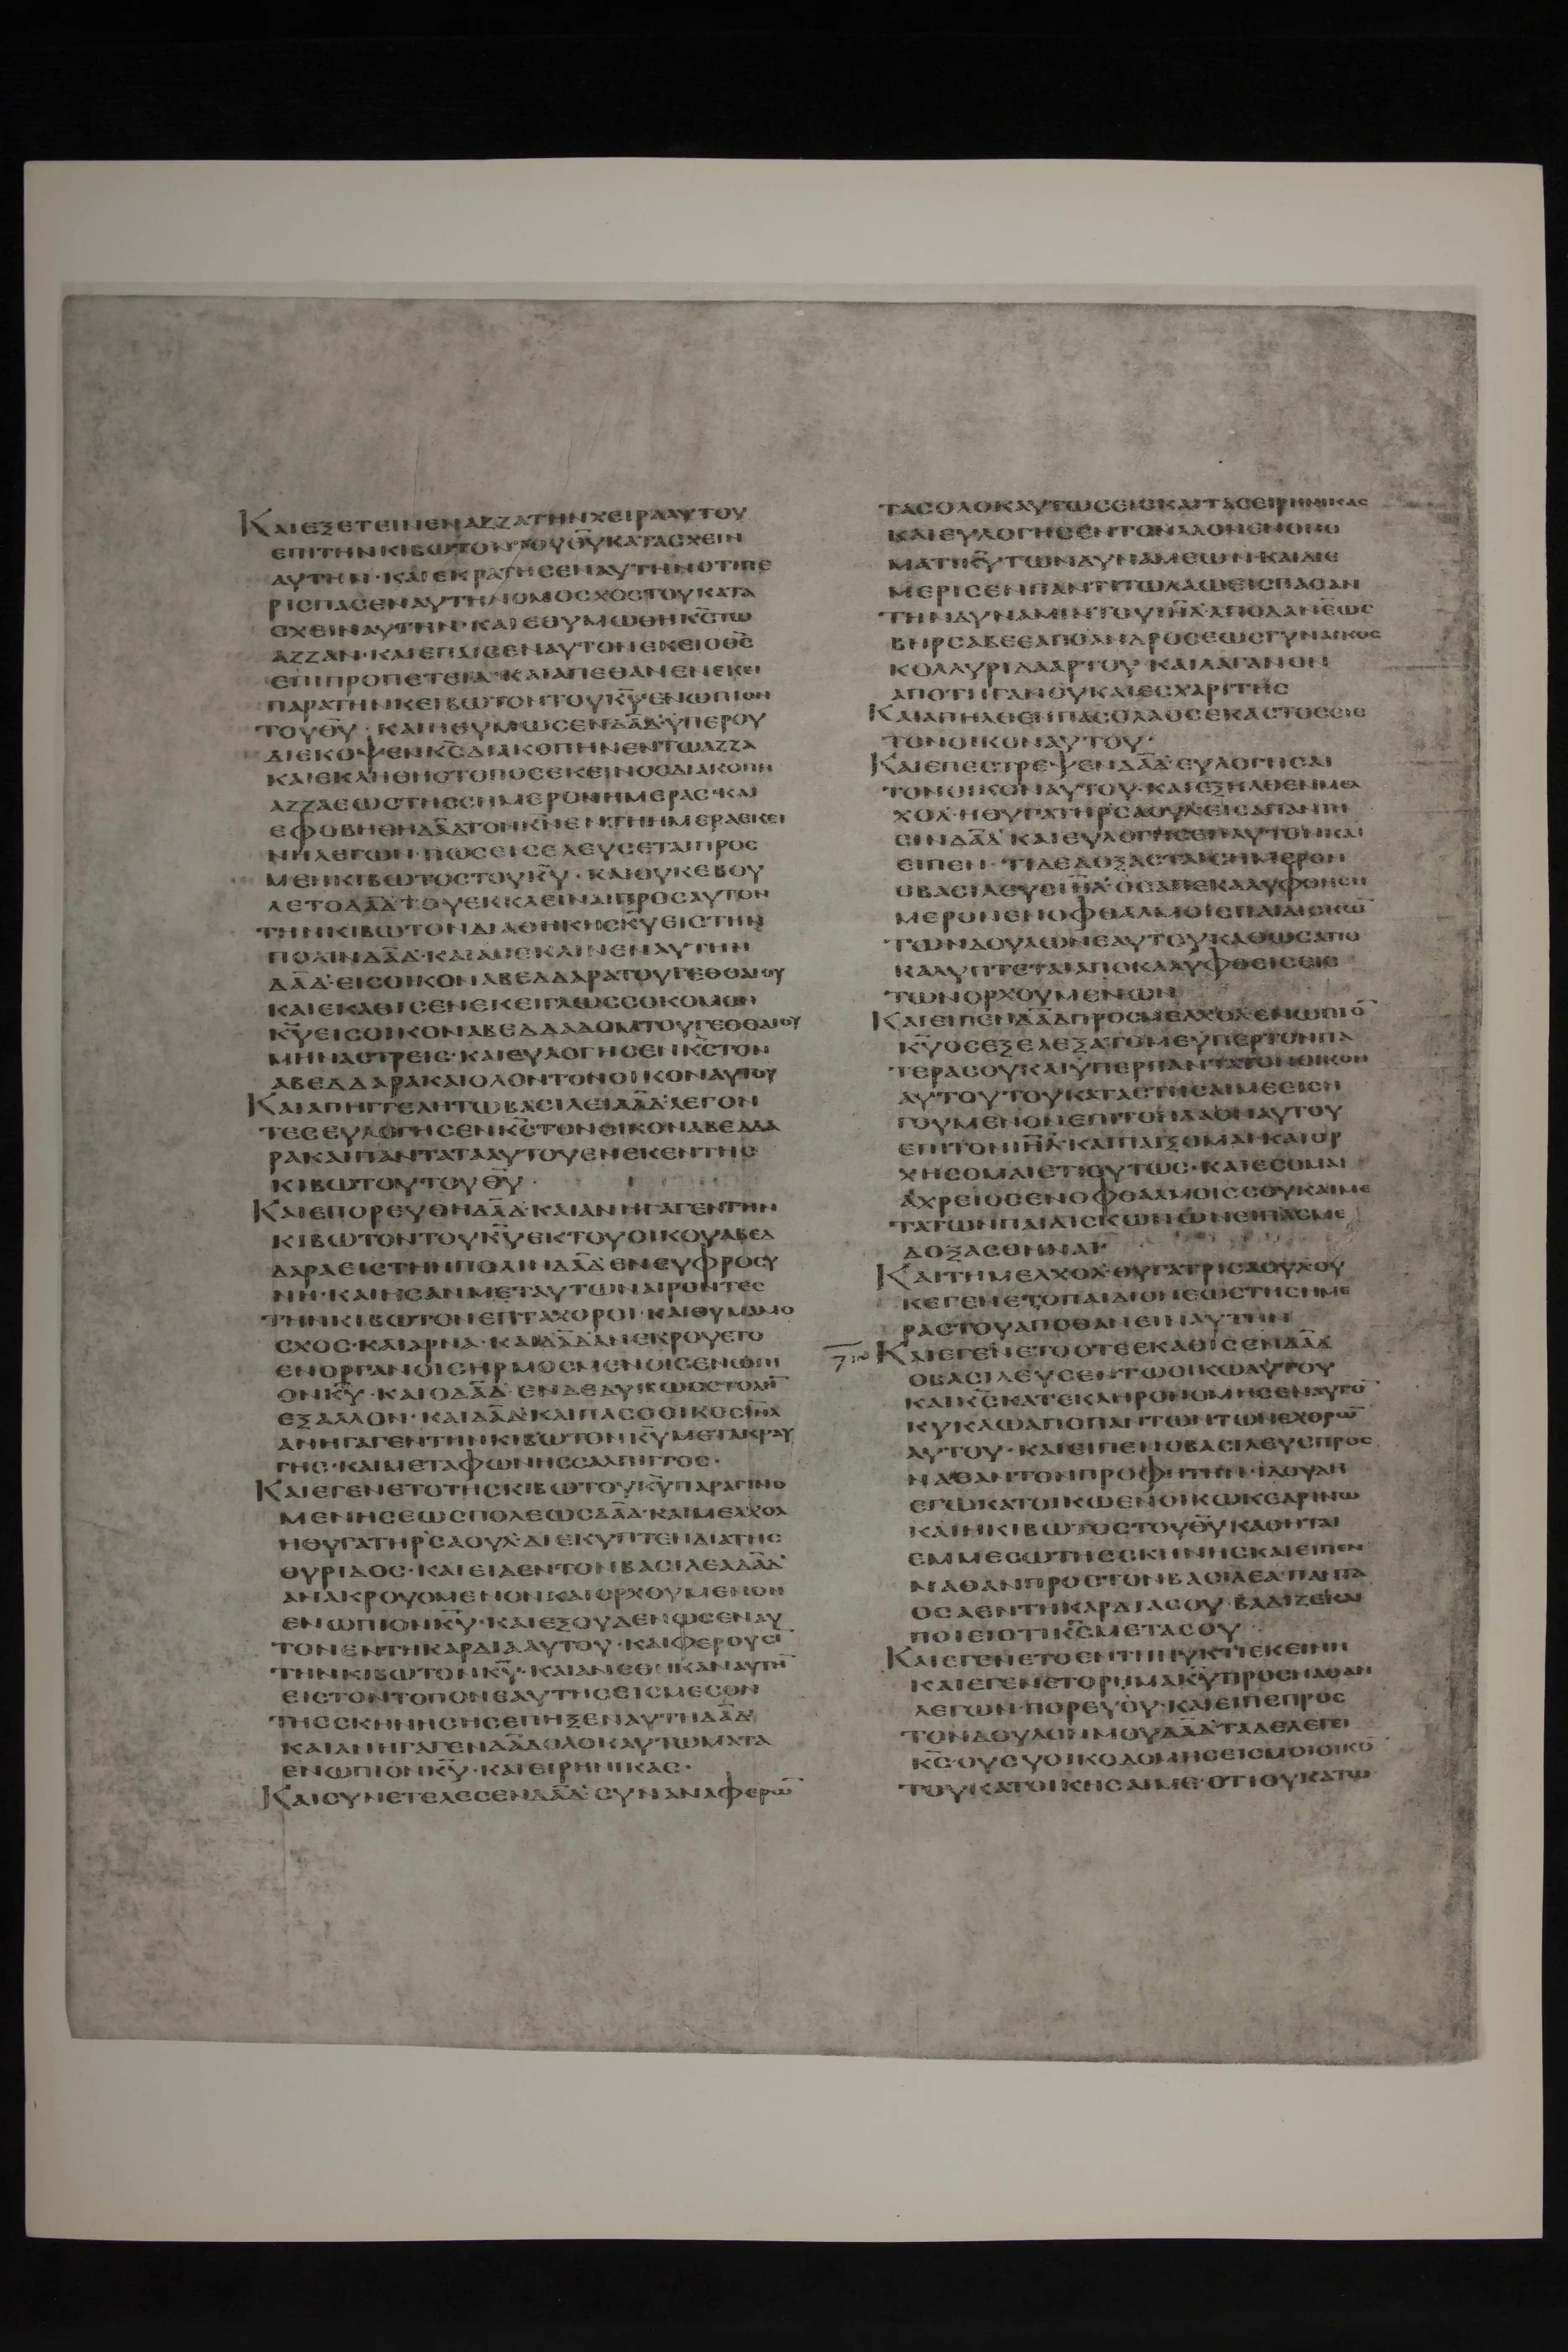 ΚΑΙΕΞΕΤΕΙΝΕΝΑΖΖΑΤΗΝΧΕΙΡΑΑΥΤΟΥ
ΕΠΙΤΗΝΚΙΒΩΤΟΝΤΟΥΘ̅Υ̅ΚΑΤΑΣΧΕΙΝ
ΑΥΤΗΝ·ΚΑΙΕΚΡΑΤΗΣΕΝΑΥΤΗΝΟΤΙΠΕ
ΡΙΣΠΑΣΕΝΑΥΤΗΝΟΜΟΣΧΟΣΤΟΥΚΑΤΑ
ΣΧΕΙΝΑΥΤΗΝ·ΚΑΙΕΘΥΜΩΘΗΚ̅Σ̅ΤΩ
ΑΖΖΑΝ·ΚΑΙΕΠΑΙΣΕΝΑΥΤΟΝΕΚΕΙΟΘ̅Σ̅
ΕΠΙΠΡΟΠΕΤΕΙΑ·ΚΑΙΑΠΕΘΑΝΕΝΕΚΕΙ
ΠΑΡΑΤΗΝΚΕΙΒΩΤΟΝΤΟΥΚ̅Υ̅ΕΝΩΠΙΟΝ
ΤΟΥΘ̅Υ̅·ΚΑΙΗΘΥΜΩΣΕΝΔ̅Α̅Δ̅ΥΠΕΡΟΥ
ΔΙΕΚΟΨΕΝΚ̅Σ̅ΔΙΑΚΟΠΗΝΕΝΤΩΑΖΖΑ
ΚΑΙΕΚΛΗΘΗΟΤΟΠΟΣΕΚΕΙΝΟΣΔΙΑΚΟΠΗ
ΑΖΖΑΕΩΣΤΗΣΣΗΜΕΡΟΝΗΜΕΡΑΣ·ΚΑΙ
ΕΦΟΒΗΘΗΔ̅Α̅Δ̅ΤΟΝΚ̅Ν̅ΕΝΤΗΗΜΕΡΑΕΚΕΙ
ΝΗΛΕΓΩΝ·ΠΩΣΕΙΣΕΛΕΥΣΕΤΑΙΠΡΟΣ
ΜΕΗΚΙΒΩΤΟΣΤΟΥΚ̅Υ̅·ΚΑΙΟΥΚΕΒΟΥ
ΛΕΤΟΔ̅Α̅Δ̅ΤΟΥΕΚΚΛΕΙΝΑΙΠΡΟΣΑΥΤΟΝ
ΤΗΝΚΙΒΩΤΟΝΔΙΑΘΗΚΗΣΚ̅Υ̅ΕΙΣΤΗΝ
ΠΟΛΙΝΔ̅Α̅Δ̅·ΚΑΙΑΠΕΚΛΙΝΕΝΑΥΤΗΝ
Δ̅Α̅Δ̅·ΕΙΣΟΙΚΟΝΑΒΕΔΔΑΡΑΤΟΥΓΕΘΘΑΙΟΥ
ΚΑΙΕΚΑΘΙΣΕΝΕΚΕΙΓΛΩΣΣΟΚΟΜΟΝ
Κ̅Υ̅ΕΙΣΟΙΚΟΝΑΒΕΔΔΑΔΟΜΤΟΥΓΕΘΘΑΙΟΥ
ΜΗΝΑΣΤΡΕΙΣ·ΚΑΙΕΥΛΟΓΗΣΕΝΚ̅Σ̅ΤΟΝ
ΑΒΕΔΔΑΡΑΚΑΙΟΛΟΝΤΟΝΟΙΚΟΝΑΥΤΟΥ
ΚΑΙΑΠΗΓΓΕΛΗΤΩΒΑΣΙΛΕΙΔ̅Α̅Δ̅ΛΕΓΟΝ
ΤΕΣΕΥΛΟΓΗΣΕΝΚ̅Σ̅ΤΟΝΟΙΚΟΝΑΒΕΔΔΑ
ΡΑΚΑΙΠΑΝΤΑΤΑΑΥΤΟΥΕΝΕΚΕΝΤΗΣ
ΚΙΒΩΤΟΥΤΟΥΘ̅Υ̅·
ΚΑΙΕΠΟΡΕΥΘΗΔ̅Α̅Δ̅·ΚΑΙΑΝΗΓΑΓΕΝΤΗΝ
ΚΙΒΩΤΟΝΤΟΥΚ̅Υ̅ΕΚΤΟΥΟΙΚΟΥΑΒΕΔ
ΔΑΡΑΕΙΣΤΗΝΠΟΛΙΝΔ̅Α̅Δ̅ΕΝΕΥΦΡΟΣΥ
ΝΗ·ΚΑΙΗΣΑΝΜΕΤΑΥΤΩΝΑΙΡΟΝΤΕΣ
ΤΗΝΚΙΒΩΤΟΝΕΠΤΑΧΟΡΟΙ·ΚΑΙΘΥΜΑΜΟ
ΣΧΟΣ·ΚΑΙΑΡΝΑ·ΚΑΙΔ̅Α̅Δ̅ΑΝΕΚΡΟΥΕΤΟ
ΕΝΟΡΓΑΝΟΙΣΗΡΜΟΣΜΕΝΟΙΣΕΝΩΠΙ
ΟΝΚ̅Υ̅·ΚΑΙΟΔ̅Α̅Δ̅ΕΝΔΕΔΥΚΩΣΣΤΟΛΗ̅
ΕΞΑΛΛΟΝ·ΚΑΙΔ̅Α̅Δ̅ΚΑΙΠΑΣΟΟΙΚΟΣΙ̅Η̅Λ̅
ΑΝΗΓΑΓΕΝΤΗΝΚΙΒΩΤΟΝΚ̅Υ̅ΜΕΤΑΚΡΑΥ
ΓΗΣ·ΚΑΙΜΕΤΑΦΩΝΗΣΣΑΛΠΙΓΓΟΣ·
ΚΑΙΕΓΕΝΕΤΟΤΗΣΚΙΒΩΤΟΥΚ̅Υ̅ΠΑΡΑΓΙΝΟ
ΜΕΝΗΣΕΩΣΠΟΛΕΩΣΔ̅Α̅Δ̅·ΚΑΙΜΕΛΧΟΛ
ΗΘΥΓΑΤΗΡΣΑΟΥΛ·ΔΙΕΚΥΠΤΕΝΔΙΑΤΗΣ
ΘΥΡΙΔΟΣ·ΚΑΙΕΙΔΕΝΤΟΝΒΑΣΙΛΕΑΔ̅Α̅Δ̅
ΑΝΑΚΡΟΥΟΜΕΝΟΝΚΑΙΟΡΧΟΥΜΕΝΟΝ
ΕΝΩΠΙΟΝΚ̅Υ̅·ΚΑΙΕΞΟΥΔΕΝΩΣΕΝΑΥ
ΤΟΝΕΝΤΗΚΑΡΔΙΑΑΥΤΟΥ·ΚΑΙΦΕΡΟΥΣΙ̅
ΤΗΝΚΙΒΩΤΟΝΚ̅Υ̅·ΚΑΙΑΝΕΘΗΚΑΝΑΥΤΗ̅
ΕΙΣΤΟΝΤΟΠΟΝΕΑΥΤΗΣΕΙΣΜΕΣΟΝ
ΤΗΣΣΚΗΝΗΣΗΣΕΠΗΞΕΝΑΥΤΗΔ̅Α̅Δ̅
ΚΑΙΑΝΗΓΑΓΕΝΔ̅Α̅Δ̅ΟΛΟΚΑΥΤΩΜΑΤΑ
ΕΝΩΠΙΟΝΚ̅Υ̅·ΚΑΙΕΙΡΗΝΙΚΑΣ·
ΚΑΙΣΥΝΕΤΕΛΕΣΕΝΔ̅Α̅Δ̅ΣΥΝΑΝΑΦΕΡΩ̅
ΤΑΣΟΛΟΚΑΥΤΩΣΕΙΣΚΑΙΤΑΣΕΙΡΗΝΙΚΑΣ
ΚΑΙΕΥΛΟΓΗΣΕΝΤΟΝΛΑΟΝΕΝΟΝΟ
ΜΑΤΙΚ̅Υ̅ΤΩΝΔΥΝΑΜΕΩΝ·ΚΑΙΔΙΕ
ΜΕΡΙΣΕΝΠΑΝΤΙΤΩΛΑΩΕΙΣΠΑΣΑΝ
ΤΗΝΔΥΝΑΜΙΝΤΟΥΙ̅Η̅Λ̅ΑΠΟΔΑΝΕΩΣ
ΒΗΡΣΑΒΕΕΑΠΟΑΝΔΡΟΣΕΩΣΓΥΝΑΙΚΟΣ
ΚΟΛΛΥΡΙΔΑΑΡΤΟΥ·ΚΑΙΛΑΓΑΝΟΝ
ΑΠΟΤΗΓΑΝΟΥΚΑΙΕΣΧΑΡΙΤΗΣ
ΚΑΙΑΠΗΛΘΕΝΠΑΣΟΛΑΟΣΕΚΑΣΤΟΣΕΙΣ
ΤΟΝΟΙΚΟΝΑΥΤΟΥ·
ΚΑΙΕΠΕΣΤΡΕΨΕΝΔ̅Α̅Δ̅ΕΥΛΟΓΗΣΑΙ
ΤΟΝΟΙΚΟΝΑΥΤΟΥ·ΚΑΙΕΞΗΛΘΕΝΜΕΛ
ΧΟΛ·ΗΘΥΓΑΤΗΡΣΑΟΥΛΕΙΣΑΠΑΝΤΗ
ΣΙΝΔ̅Α̅Δ̅ΚΑΙΕΥΛΟΓΗΣΕΝΑΥΤΟΝΚΑΙ
ΕΙΠΕΝ·ΤΙΔΕΔΟΞΑΣΤΑΙΣΗΜΕΡΟΝ
ΟΒΑΣΙΛΕΥΣΙ̅Η̅Λ̅ΟΣΑΠΕΚΑΛΥΦΘΗΣΗ
ΜΕΡΟΝΕΝΟΦΘΑΛΜΟΙΣΠΑΙΔΙΣΚΩ̅
ΤΩΝΔΟΥΛΩΝΕΑΥΤΟΥΚΑΘΩΣΑΠΟ
ΚΑΛΥΠΤΕΤΑΙΑΠΟΚΑΛΥΦΘΕΙΣΕΙΣ
ΤΩΝΟΡΧΟΥΜΕΝΩΝ
ΚΑΙΕΙΠΕΝΔ̅Α̅Δ̅ΠΡΟΣΜΕΛΧΟΛΕΝΩΠΙΟ̅
Κ̅Υ̅ΟΣΕΞΕΛΕΞΑΤΟΜΕΥΠΕΡΤΟΝΠΑ
ΤΕΡΑΣΟΥΚΑΙΥΠΕΡΠΑΝΤΑΤΟΝΟΙΚΟΝ
ΑΥΤΟΥΤΟΥΚΑΤΑΣΤΗΣΑΙΜΕΕΙΣΗ
ΓΟΥΜΕΝΟΝΕΠΙΤΟΝΛΑΟΝΑΥΤΟΥ
ΕΠΙΤΟΝΙ̅Η̅Λ̅·ΚΑΙΠΑΙΞΟΜΑΙΚΑΙΟΡ
ΧΗΣΟΜΑΙΕΤΙΟΥΤΩΣ·ΚΑΙΕΣΟΜΑΙ
ΑΧΡΕΙΟΣΕΝΟΦΘΑΛΜΟΙΣΣΟΥΚΑΙΜΕ
ΤΑΤΩΝΠΑΙΔΙΣΚΩΝΩΝΕΙΠΑΣΜΕ
ΔΟΞΑΣΘΗΝΑΙ·
ΚΑΙΤΗΜΕΛΧΟΛ·ΘΥΓΑΤΡΙΣΑΟΥΛΟΥ
ΚΕΓΕΝΕΤΟΠΑΙΔΙΟΝΕΩΣΤΗΣΗΜΕ
ΡΑΣΤΟΥΑΠΟΘΑΝΕΙΝΑΥΤΗΝ
ΚΑΙΕΓΕΝΕΤΟΟΤΕΕΚΑΘΙΣΕΝΔ̅Α̅Δ̅
ΟΒΑΣΙΛΕΥΣΕΝΤΩΟΙΚΩΑΥΤΟΥ
ΚΑΙΚ̅Σ̅ΚΑΤΕΚΛΗΡΟΝΟΜΗΣΕΝΑΥΤΟ̅
ΚΥΚΛΩΑΠΟΠΑΝΤΩΝΤΩΝΕΧΘΡΩ̅
ΑΥΤΟΥ·ΚΑΙΕΙΠΕΝΟΒΑΣΙΛΕΥΣΠΡΟΣ
ΝΑΘΑΝΤΟΝΠΡΟΦΗΤΗΝ·ΙΔΟΥΔΗ
ΕΓΩΚΑΤΟΙΚΩΕΝΟΙΚΩΚΕΔΡΙΝΩ
ΚΑΙΗΚΙΒΩΤΟΣΤΟΥΘ̅Υ̅ΚΑΘΗΤΑΙ
ΕΜΜΕΣΩΤΗΣΣΚΗΝΗΣΚΑΙΕΙΠΕΝ
ΝΑΘΑΝΠΡΟΣΤΟΝΒΑΣΙΛΕΑΠΑΝΤΑ
ΟΣΑΕΝΤΗΚΑΡΔΙΑΣΟΥ·ΒΑΔΙΖΕΚΑΙ
ΠΟΙΕΙΟΤΙΚ̅Σ̅ΜΕΤΑΣΟΥ
ΚΑΙΕΓΕΝΕΤΟΕΝΤΗΝΥΚΤΙΕΚΕΙΝΗ
ΚΑΙΕΓΕΝΕΤΟΡΗΜΑΚ̅Υ̅ΠΡΟΣΝΑΘΑΝ
ΛΕΓΩΝ·ΠΟΡΕΥΟΥ·ΚΑΙΕΙΠΕΠΡΟΣ
ΤΟΝΔΟΥΛΟΝΜΟΥΔ̅Α̅Δ̅ΤΑΔΕΛΕΓΕΙ
Κ̅Σ̅·ΟΥΣΥΟΙΚΟΔΟΜΗΣΕΙΣΜΟΙΟΙΚΟ̅
ΤΟΥΚΑΤΟΙΚΗΣΑΙΜΕ·ΟΤΙΟΥΚΑΤΩ